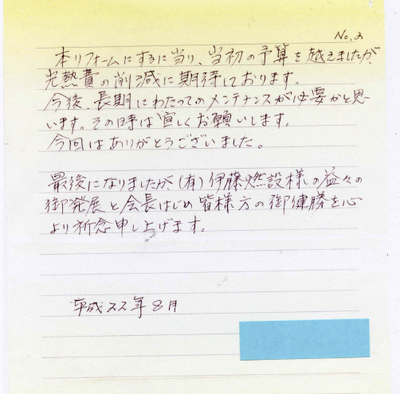 No, 3
本リフォームにするに当り、当初の予算を越えましたが、
光熱費の削減に期待しております。
今後、長期にわたってのメンテナンスが必要かと思
います。その時は宜しくお願いします。
今回はありがとうございました。
最後になりましたが(有)伊藤燃設様の益々の
御発展と会長はじめ皆様方の御健勝を心
より祈念申し上げます。
平成22年8月